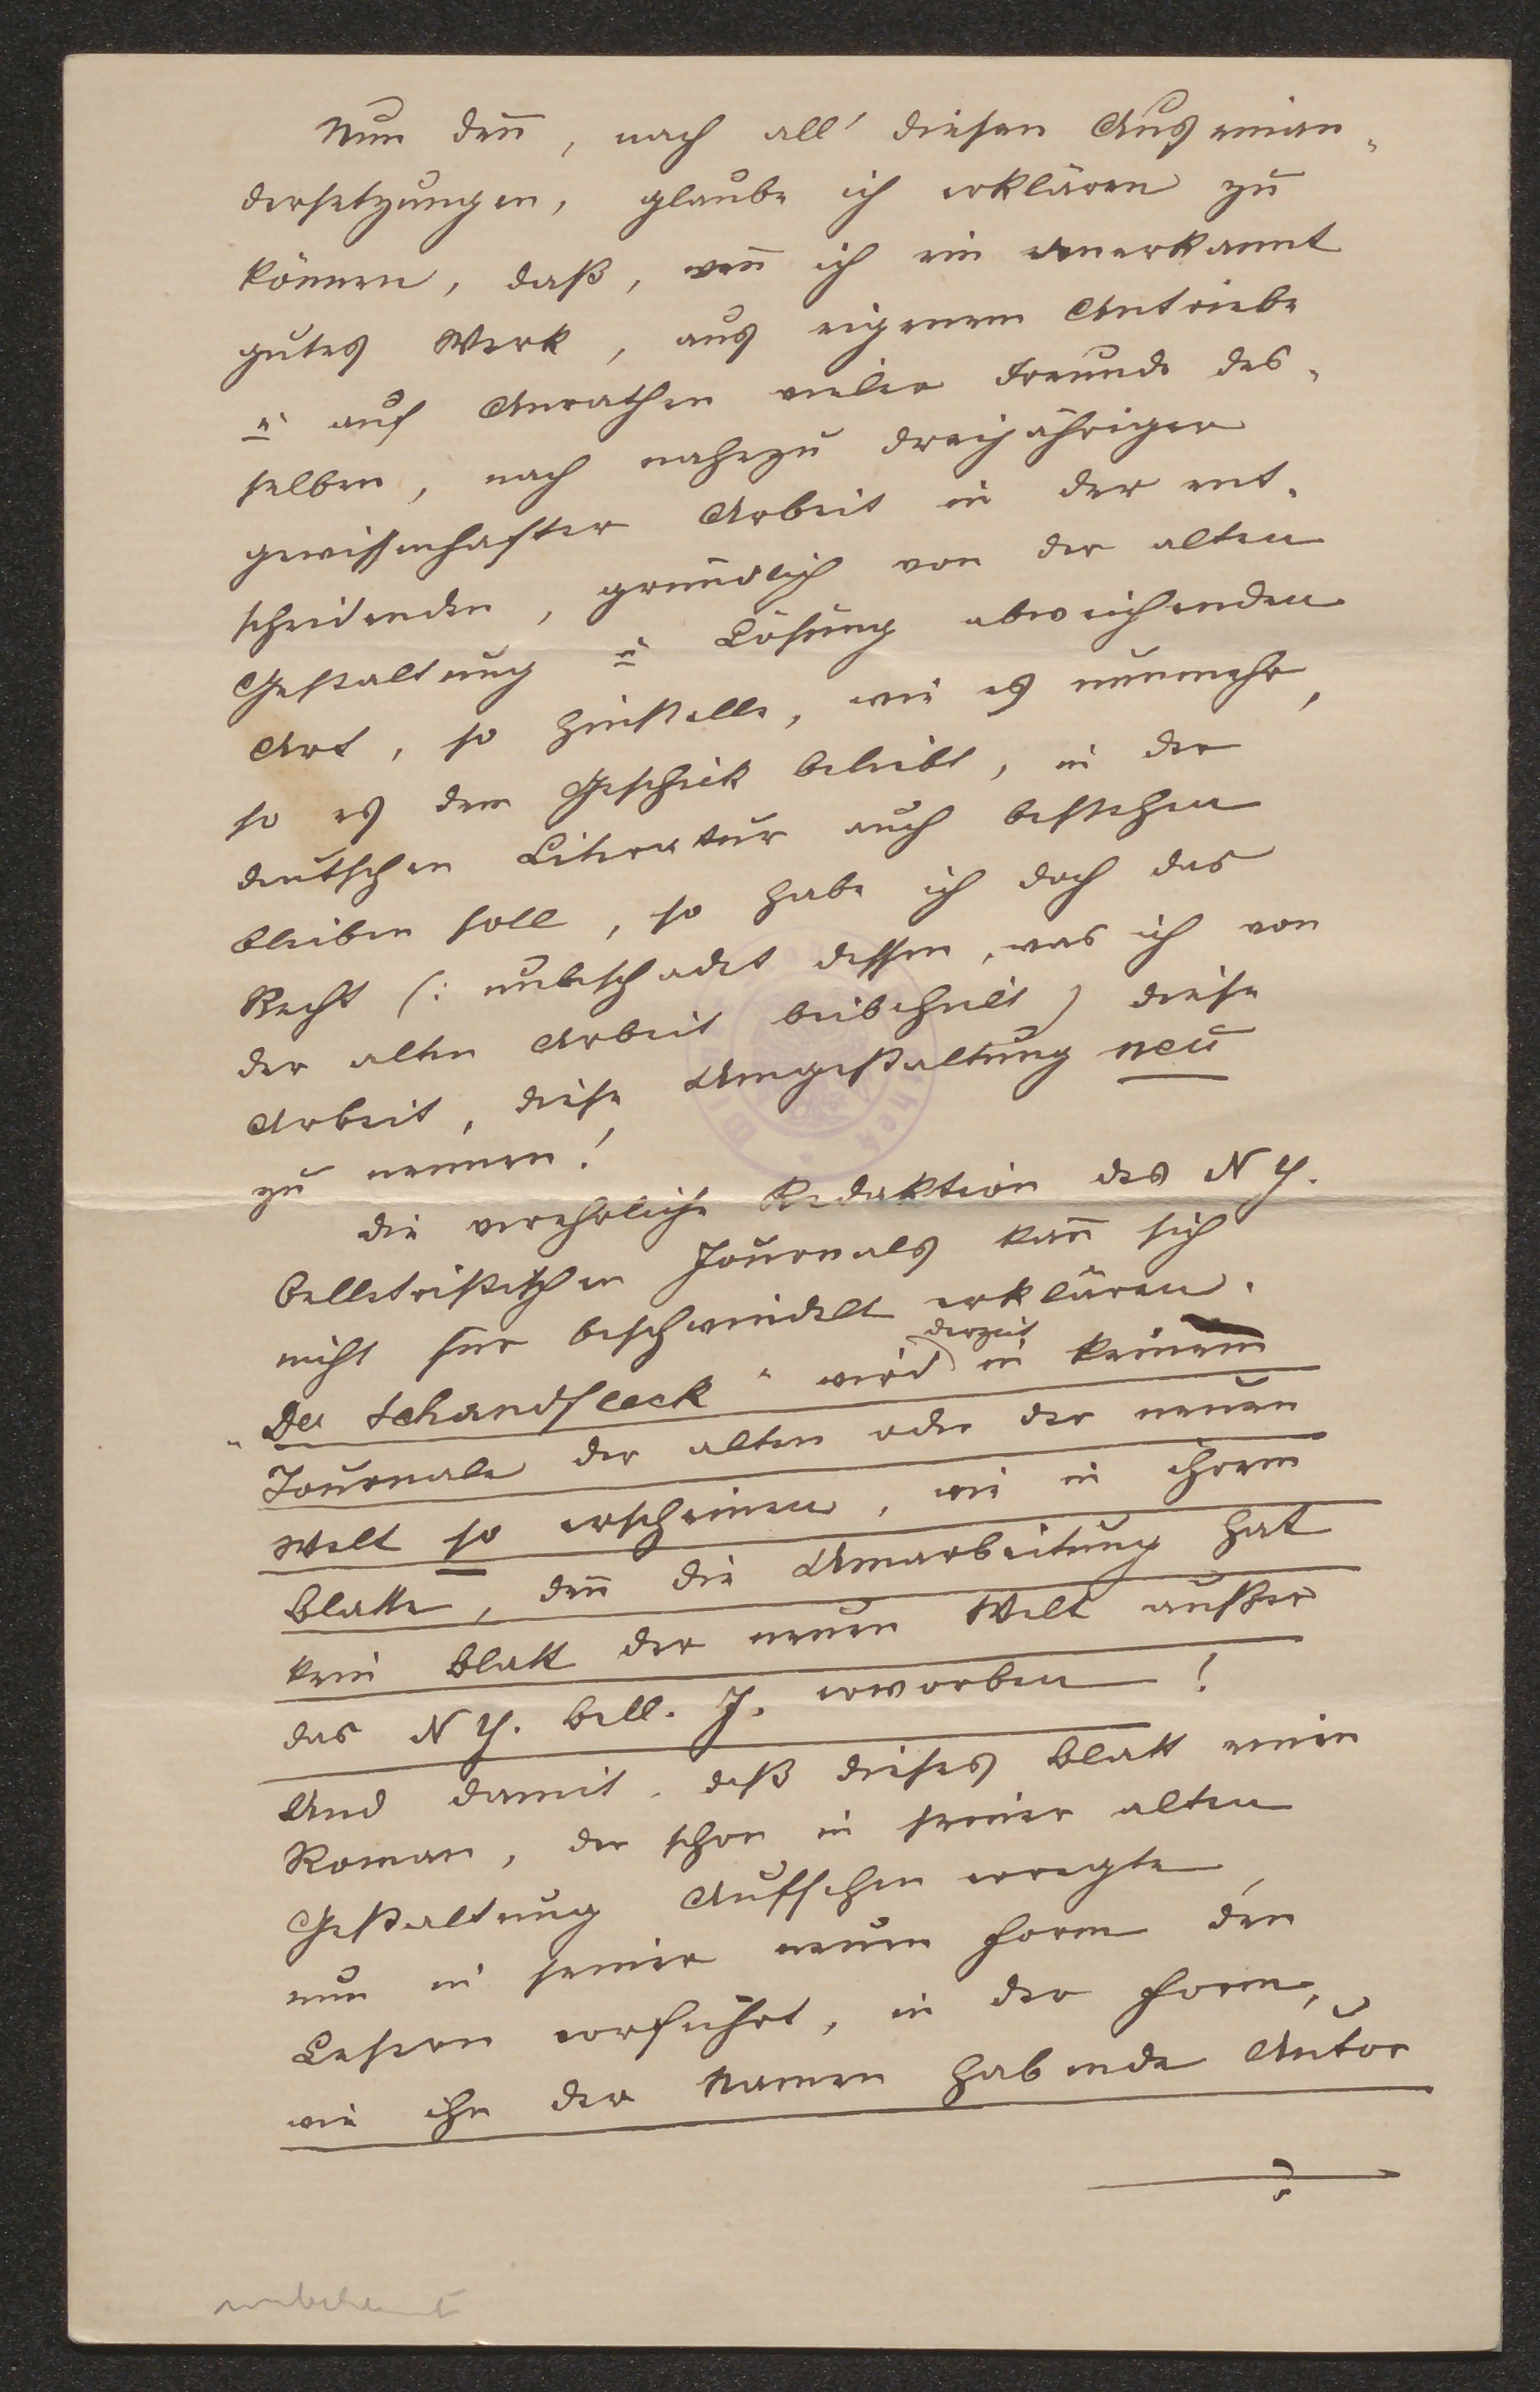 Nun deñ, nach all' diesen Auseinan-
dersetzungen, glaube ich erklären zu
können, daß, weñ ich ein anerkannt
gutes Werk, aus eigenem Antriebe
u auf Anrathen vieler Freunde des-
selben, nach nahezu dreijähriger
gewissenhafter Arbeit in der ent-
scheidenden, gründlich von der alten
Gestaltung u Lösung abweichenden
Art, so hinstelle, wie es nunmehr,
so es dem Geschick beliebt, in der
deutschen Literatur auch bestehen
bleiben soll, so habe ich doch das
Recht (: unbeschadet dessen, was ich von
der alten Arbeit beibehielt) diese
Arbeit, diese Umgestaltung neu
zu nennen!
Die verehrliche Redaktion des N Y.
belletristischen Journals kañ sich
nicht für beschwindelt erklären.
derzeit
"Der Schandfleck" wird in keinem
Journale der alten oder der neuen
Welt so erscheinen, wie in Ihrem
Blatte, deñ die Umarbeitung hat
kein Blatt der neuen Welt außer
das N Y. Bell. J. erworben!
Und damit, daß dieses Blatt einen
Roman, der schon in seiner alten
Gestaltung Aufsehen erregte,
nun in seiner neuen Form den
Lesern vorführt, in der Form,
wie ihn der Namen habende Autor